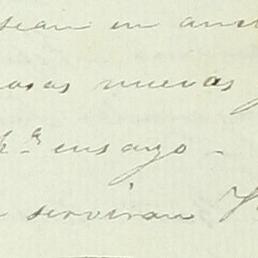 sean en
cosas nuevas
pr.a ensayo -
servirán